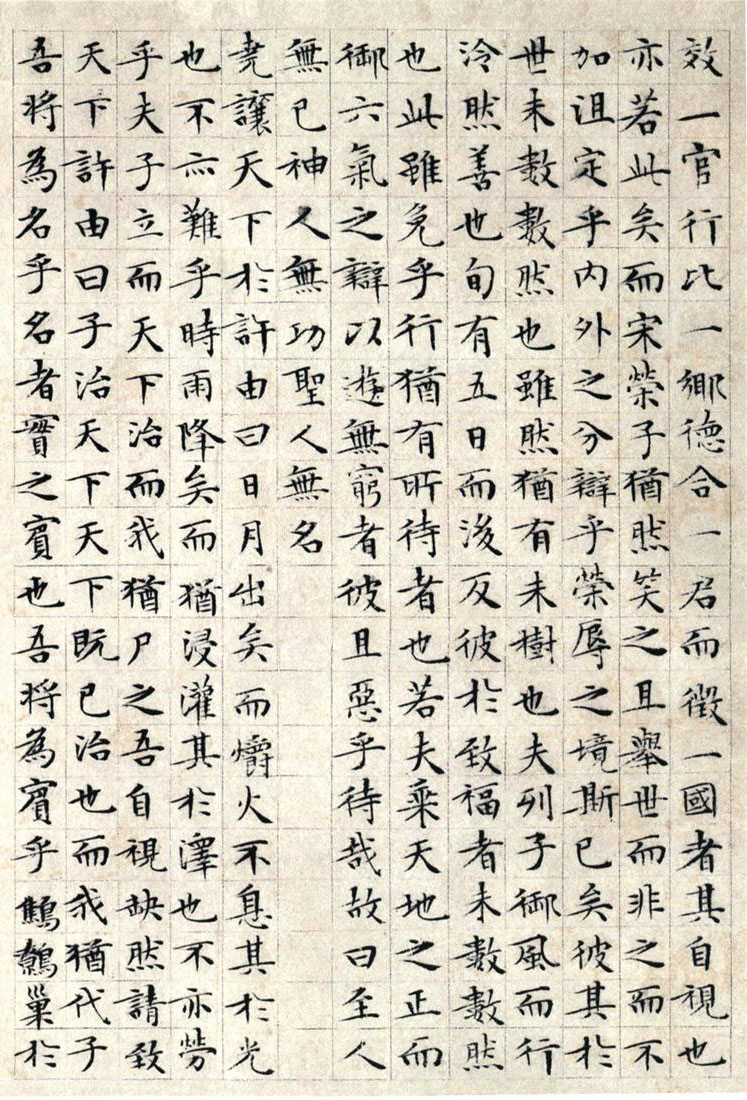 效一官行比一鄉德合一君而徵一國者其自視也
亦若此矣而宋榮子猶然笑之且舉世而非之而不
加沮定乎內外之分辯乎榮辱之境斯已矣彼其於
世未數數然也雖然猶有未樹也夫列子御風而行
泠然善也旬有五日而後反彼於致福者未數數然
也此雖免乎行猶有所待者也若夫乘天地之正而
御六氣之辯以遊無窮者彼且惡乎待哉故曰至人
無己神人無功聖人無名
堯讓天下於許由曰日月出矣而爝火不息其於光
也不亦難乎時雨降矣而猶浸灌其於澤也不亦勞
乎夫子立而天下治而我猶尸之吾自視缺然請致
天下許由曰子治天下天下既已治也而我猶代子
吾將為名乎名者實之賓也吾將為賓乎鷦鷯巢於